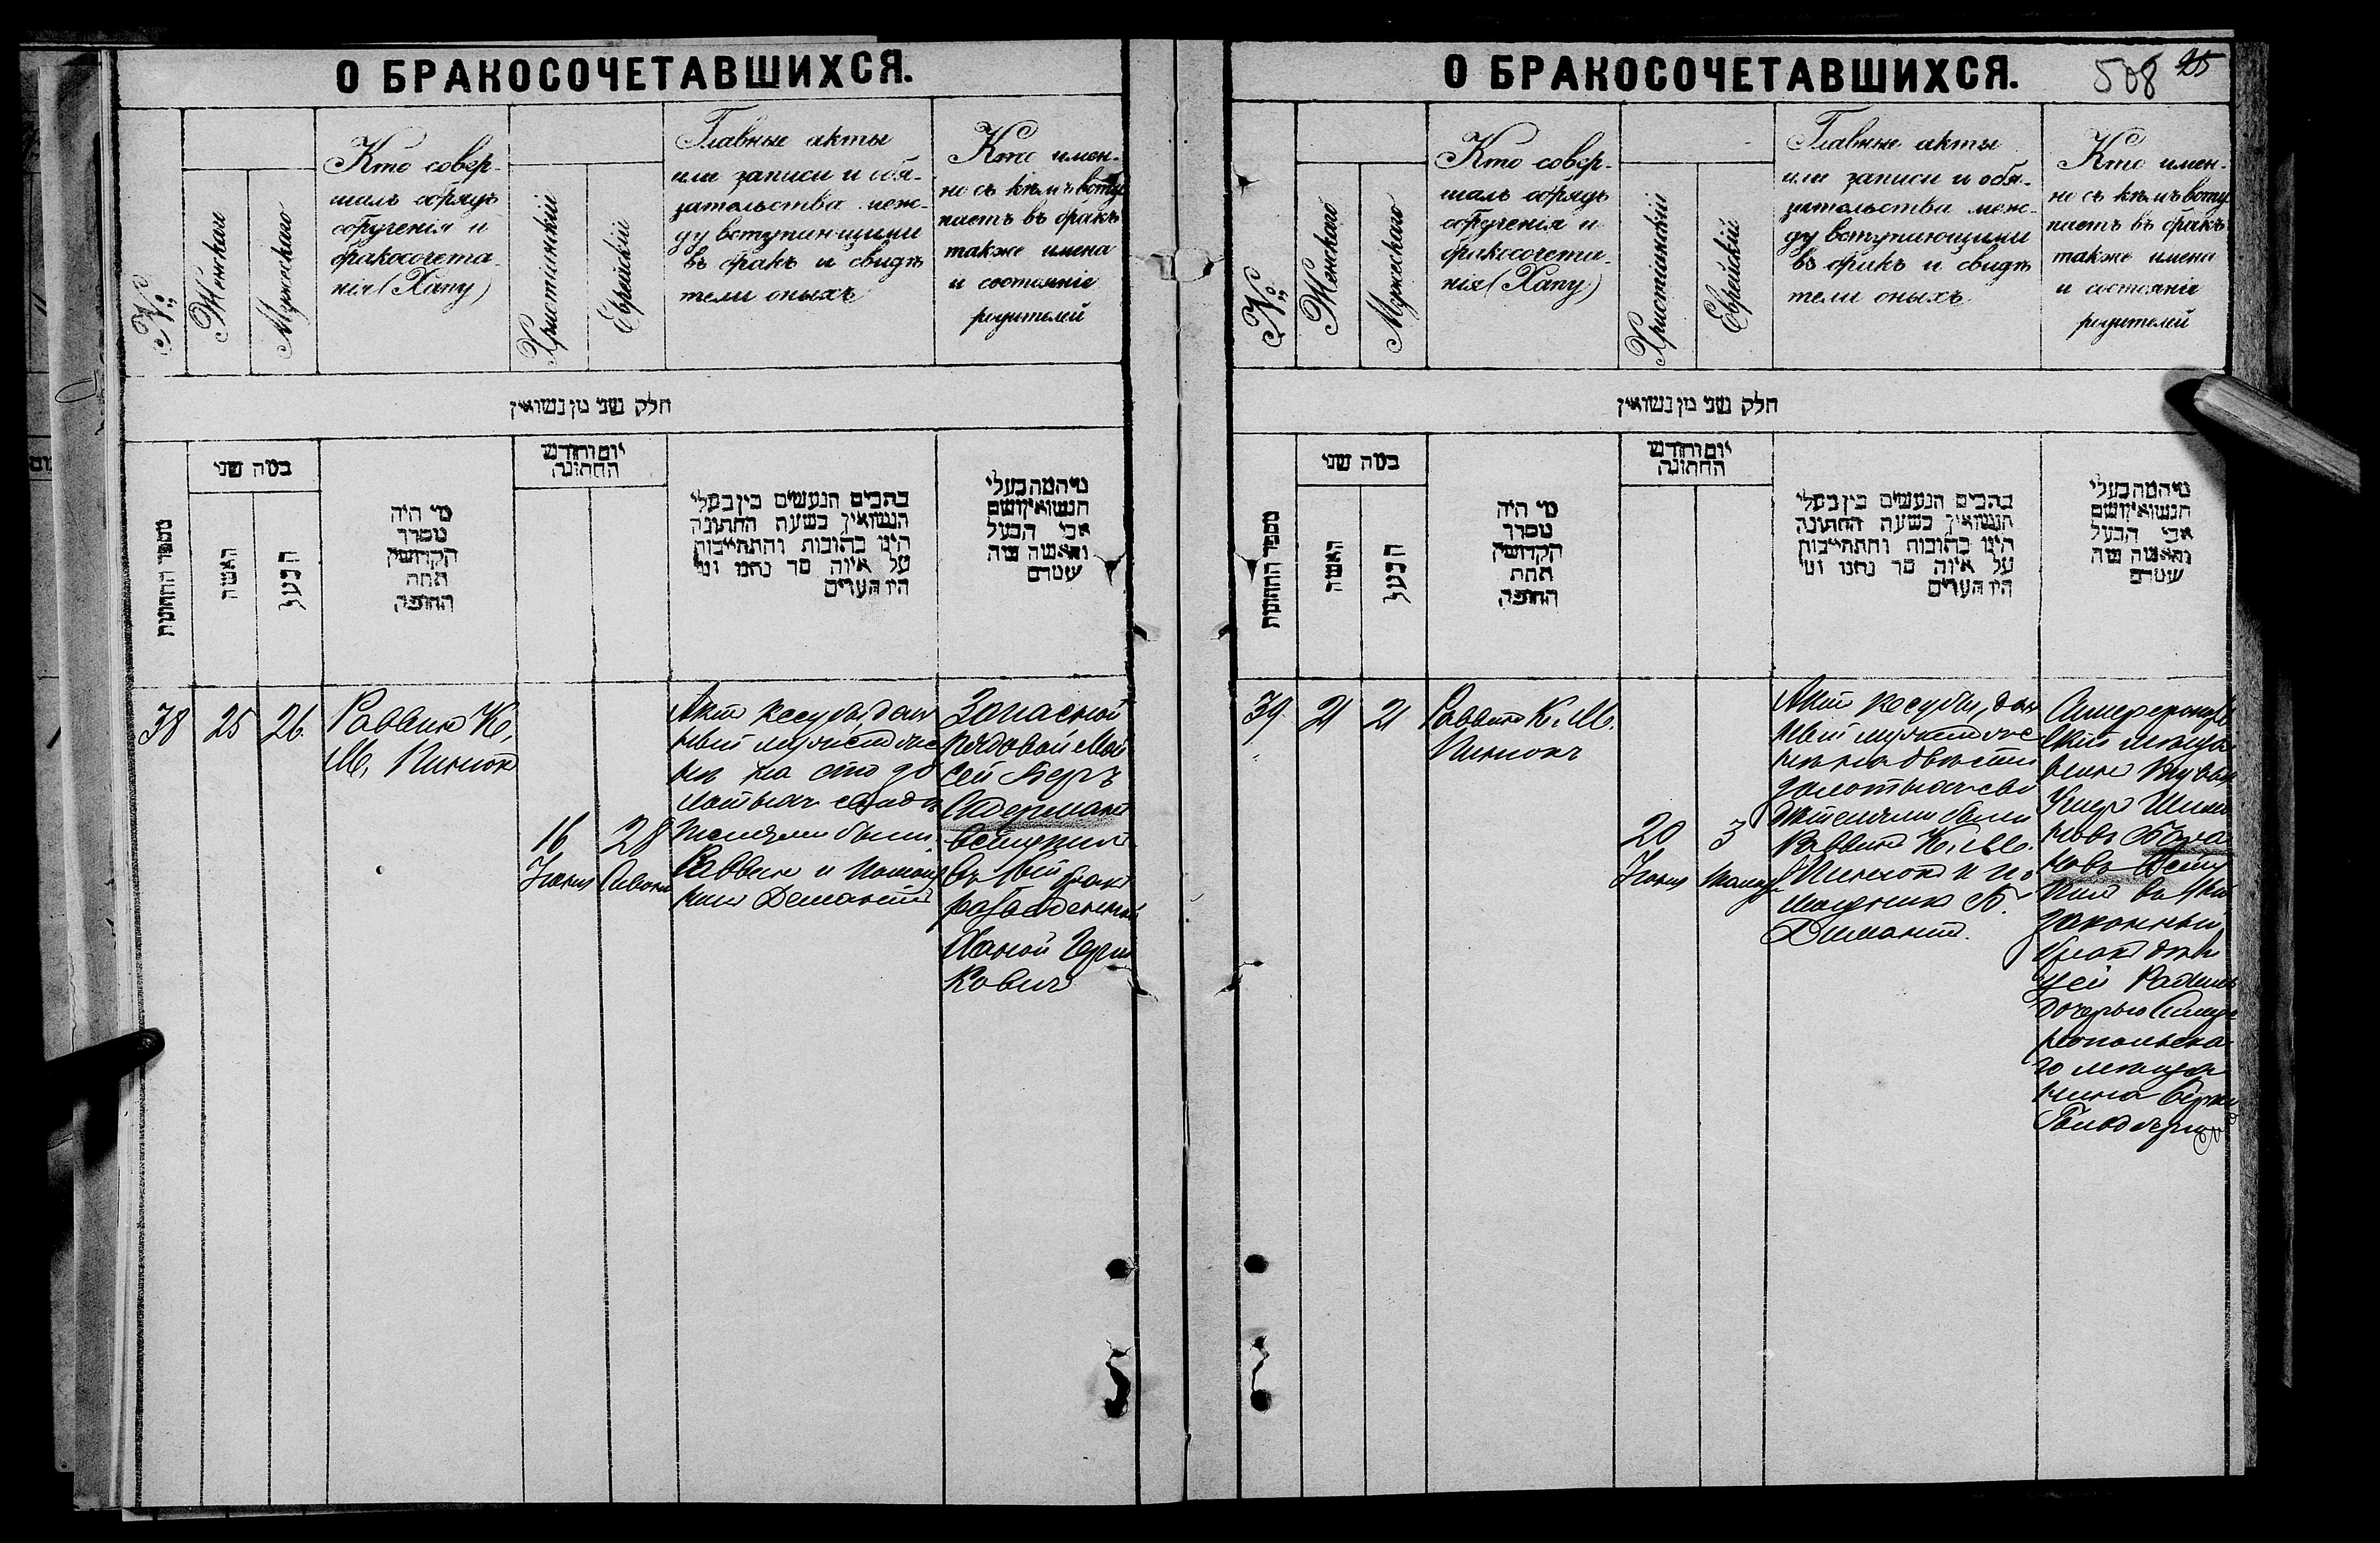 О БРАКОСОЧЕТАВШИХСЯ.
№
Женскаго
Мужескаго
Кто совер-
шалъ обрядъ
обрученія и
бракосочета-
нія (Хапу)
Христіянскій
Еврейскій
Главные акты
или записи и обя-
зательства меж-
ду вступающими
въ бракъ и свидѣ
тели оныхъ
Кто имен-
но съ кѣмъ всту
паетъ въ бракъ
также имена
и состояніе
родителей
חלק שני מן נשואין
מספר החתונות
כמה שני
האשה
הבעל
מי היה
מסדר
הקדושין
תחת
החופה
יום וחודש
החתונה
כתבים הנעשים בין בעלי
הנשואין בשעת החתונה
היינו כתובות והתחייבות
על איזה סך נתנו ומי
היו העדים
מי המה בעלי
הנשואין ושם
אבי הבעל
והאשה מה
שמם
38
25
26.
Раввин К.
М. Пинчон
16
Июня
28
Сивона
Акт кесубы, дан
ный мужем жене
на сто зо
лотых свидѣ
телями были
Раввин и помощ
ник Демант
Запасной
рядовой Мой
сей Беръ
вступил
въ 1ый брак
Ханой
О БРАКОСОЧЕТАВШИХСЯ.
508
25
№
Женскаго
Мужескаго
Кто совер-
шалъ обрядъ
обрученія и
бракосочета-
нія (Хапу)
Христіянскій
Еврейскій
Главные акты
или записи и обя-
зательства меж-
ду вступающими
въ бракъ и свидѣ
тели оныхъ
Кто имен-
но съ кѣмъ всту
паетъ въ бракъ
также имена
и состояніе
родителей
חלק שני מן נשואין
מספר החתונות
כמה שני
האשה
הבעל
מי היה
מסדר
הקדושין
תחת
החופה
יום וחודש
החתונה
כתבים הנעשים בין בעלי
הנשואין בשעת החתונה
היינו כתובות והתחייבות
על איזה סך נתנו ומי
היו העדים
מי המה בעלי
הנשואין ושם
אבי הבעל
והאשה מה
שמם
39
21
21
Раввин К. М.
Пинчонъ
20
Июня
3
Акт кесубы, дан
ный мужем же
не на двѣсти
золотых сви
дѣтелями были
Раввин К. М.
Пинчон и по
мощник
Димант.
вступ
ил въ 1ый
законный
брак дѣви
цей
дочерью
го мѣщан
нина